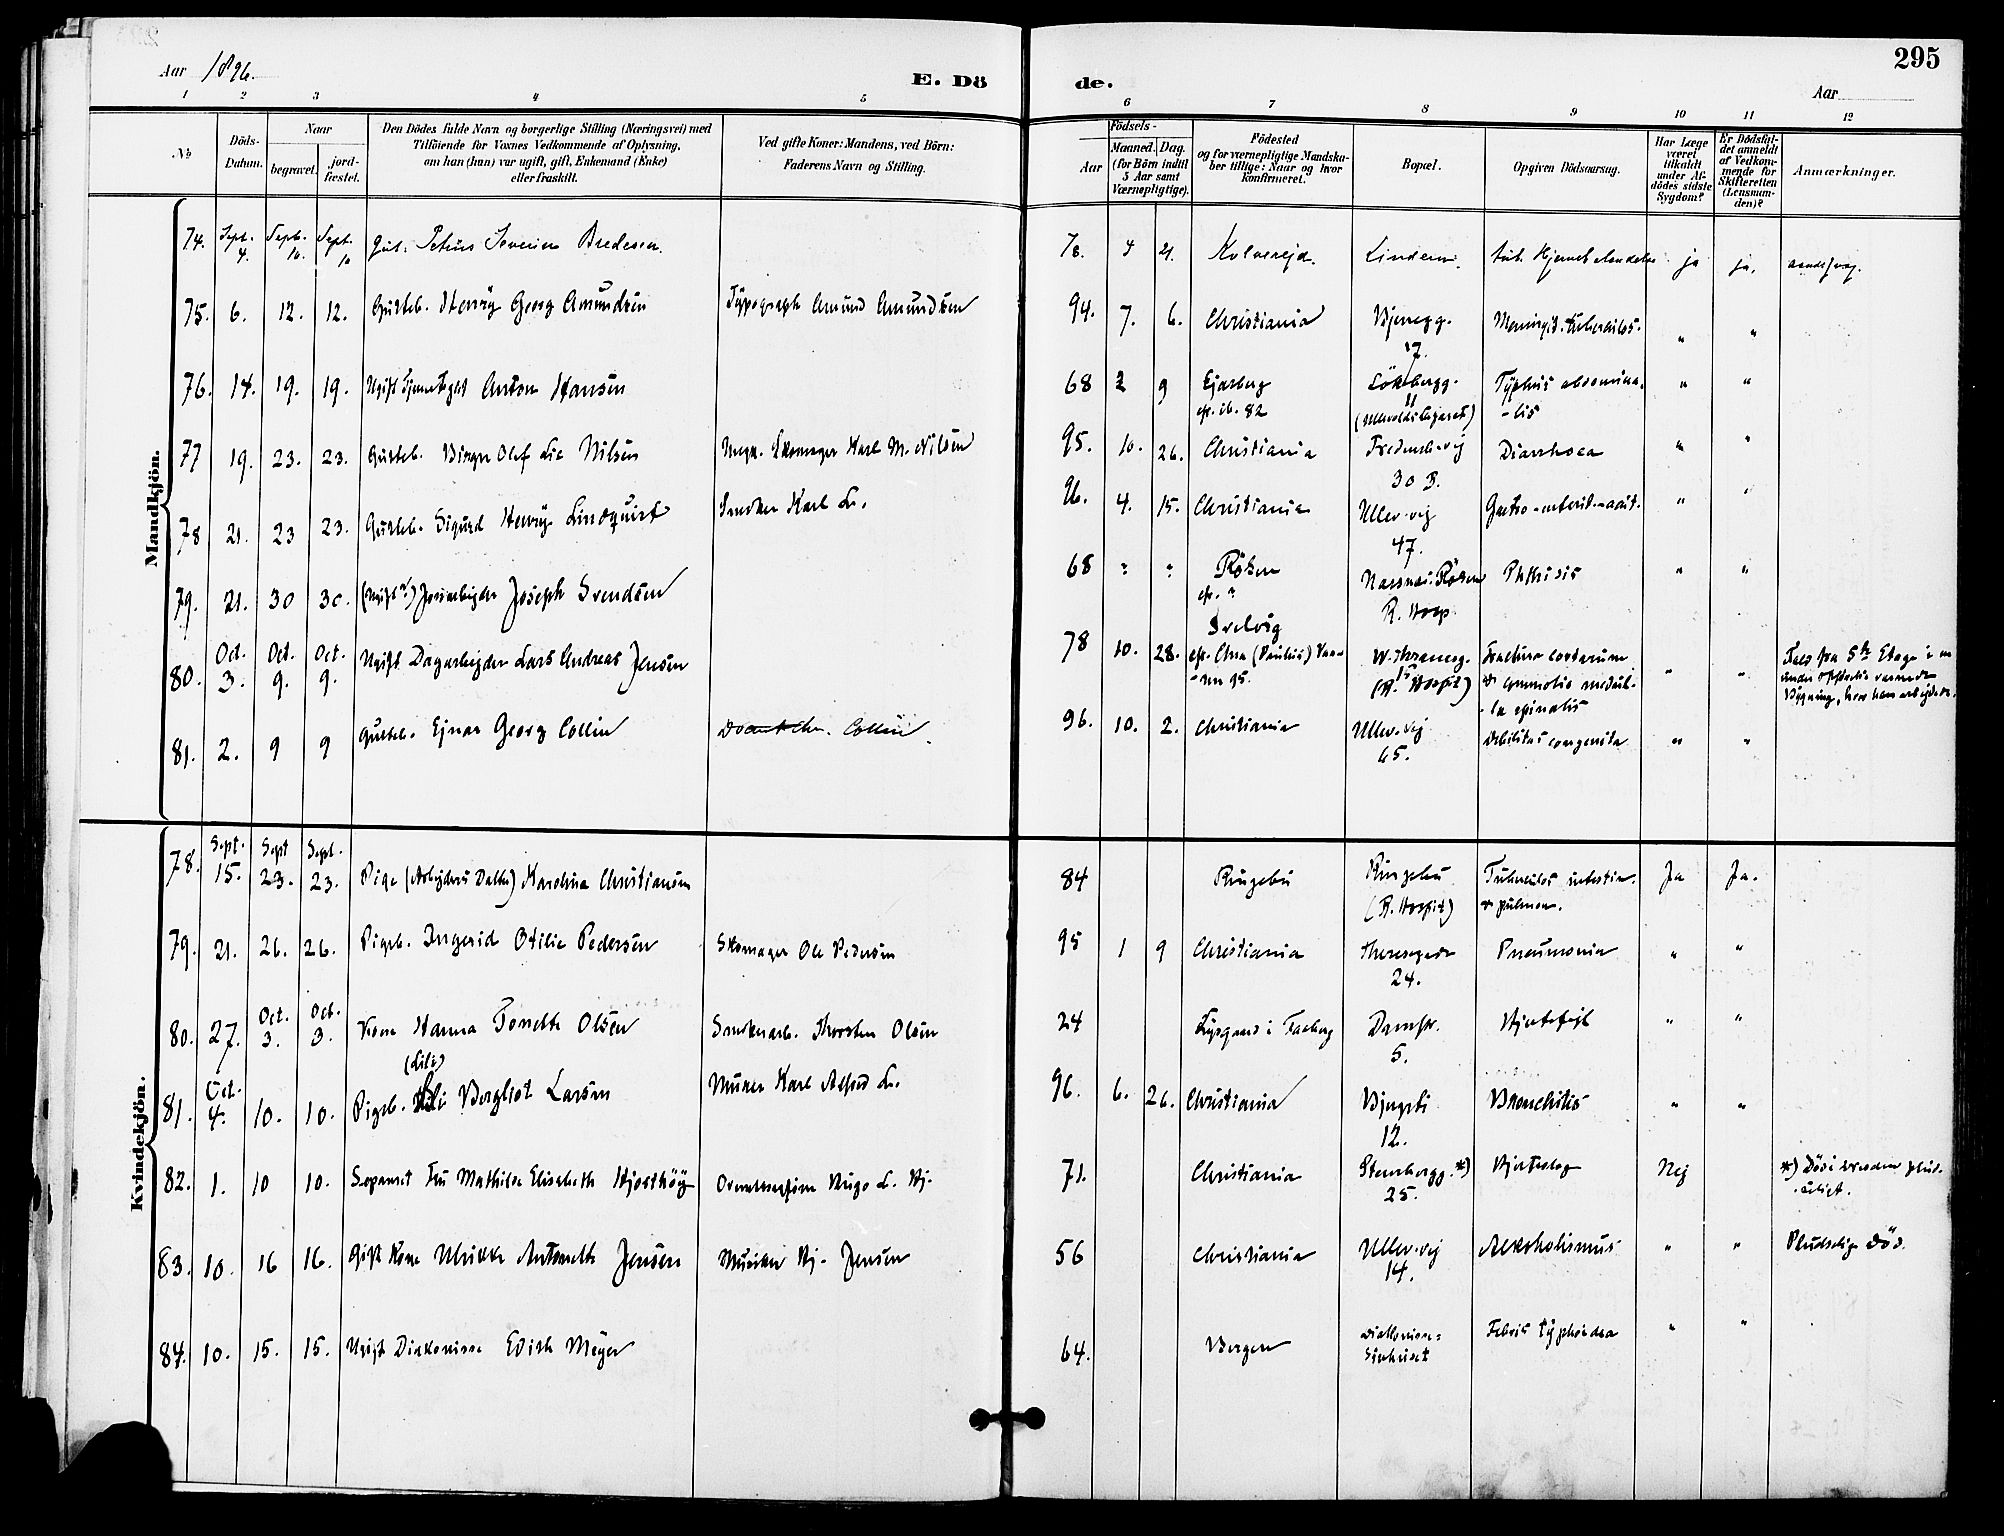 295
Aar 1896.
E. Dö
de.
Aar
1 2 3 4 5 6 7 8 9 10 11 12
No
Döds-Datum.
Naar
begravet.
jord-fæstet.
Den Dödes fulde Navn og borgerlige Stilling (Næringsvei) med
Tilföiende for Voxnes Vedkommende af Oplysning,
om han (hun) var ugift, gift, Enkemand (Enke)
eller fraskilt.
Ved gifte Koner: Mandens, ved Börn:
Faderens Navn og Stilling.
Födsels-
Aar
Maaned. Dag.
(for Börn indtil
5 Aar samt
Værnepligtige).
Födested
og for værnepligtige Mandska-
ber tillige: Naar og hvor
konfirmeret.
Bopæl.
Opgiven Dödsaarsag.
Har Læge
været
tilkaldt
under Af-
dödes sidste
Sygdom?
Er Dödsfal-
det anmeldt
af Vedkom-
mende for
Skifteretten
(Lensman-
den)?
Anmærkninger.
Mandkjön.
74. Sept. 4. Sept. 10. Sept. 10 Gut. Petrus Severin Bredesen. 78. 21. Kolvereid. Lindern. ja ja. aandssvag.
75. 6. 12. 12. Gutteb. Henry Georg Amundsen Typograph Amund Amundsen 94. 7. 6. Christiania Bjeregg. 17. Meningit. tuberculos. " "
76. 14. 19. 19. Ugift Anton Hansen 68 2 9 Ejdsberg cf. ib. 82 Lökkebergg. 11 (Ullevolds Lazaret) Typhus abdomina-
-lis " "
77 19. 23. 23. Gutteb. Birger Olef Lie Nilsen Skomager Karl M. Nilsen 95. 10. 26. Christiania Fredensb.vej 30 B. Diarrhoea " "
78 21. 23 23. Gutteb. Sigurd Henry Lindquist Snedker Karl L. 96. 4. 15. Christiania Ullev.vej 47. Gastro-enterit. acut. " "
79. 21. 30 30. (Ugift?) Joseph Svendsen 68 " " Röken cf. ? Naersnes. Röken R. Hosp. Phthisis " "
80. Oct. 3. Oct. 9. Oct. 9. Ugift Dagarbejder Lars Andreas Jensen 78 10. 28. Svelvig W. Thranesg. 15 (R. Hospit) Fractura costarum
& commotio medul-
-la spinalis " " Faldt fra 5te Etage i en
under Opförelse værende
Bygning, hvor han arbejdede.
81. 2. 9 9 Gutteb. Ejnar Georg Collin Collin. 96. 10. 2. Christiania Ullev.vej 65. Debilitas congenita " "
Kvindekjön.
78. Sept. 15. Sept 23. Sept. 23. Pige (Arbejders Datter) Karoline Christiansen 84 Ringebu Ringebu (R. Hospit) Tuberculos intestin.
& pulmon. Ja Ja.
79. 21. 26. 26. Pigeb. Ingerid Otilie Pedersen Skomager Ole Pedersen 95 1 9 Christiania Theresegade 24. Pneumonia " "
80. 27. Oct. 3. Oct. 3. Kone Hanna Tonette Olsen Snedkerarb. Thorsten Olsen 24 i Faaberg Damstr. 5. Hjertefejl " "
81. Oct. 4. 10. 10. Pigeb. (Lili) Lili Bergliot Larsen Murer Karl Alfred L. 96. 6. 26. Christiania Bjergsti 12. Bronchitis " "
82. 1. 10 10. Separeret Fru Mathilde Elisabeth Hjorthöy Hugo L. Hj. 71. Christiania Stensbergg. *) 25. Hjerteslag Nej *) Döde i plud-
-seligt.
83. 10. 16 16. Gift Kone Ulrikke Antonette Jensen Musiker Hj. Jensen 56 Christiania Ullev.vej 14. Alkoholismus " " Pludselig Död.
84. 10. 15. 15. Ugift Diakonisse Edith Meyer 64. Bergen Diakonisse-
Sygehuset Febris typhoidea " "